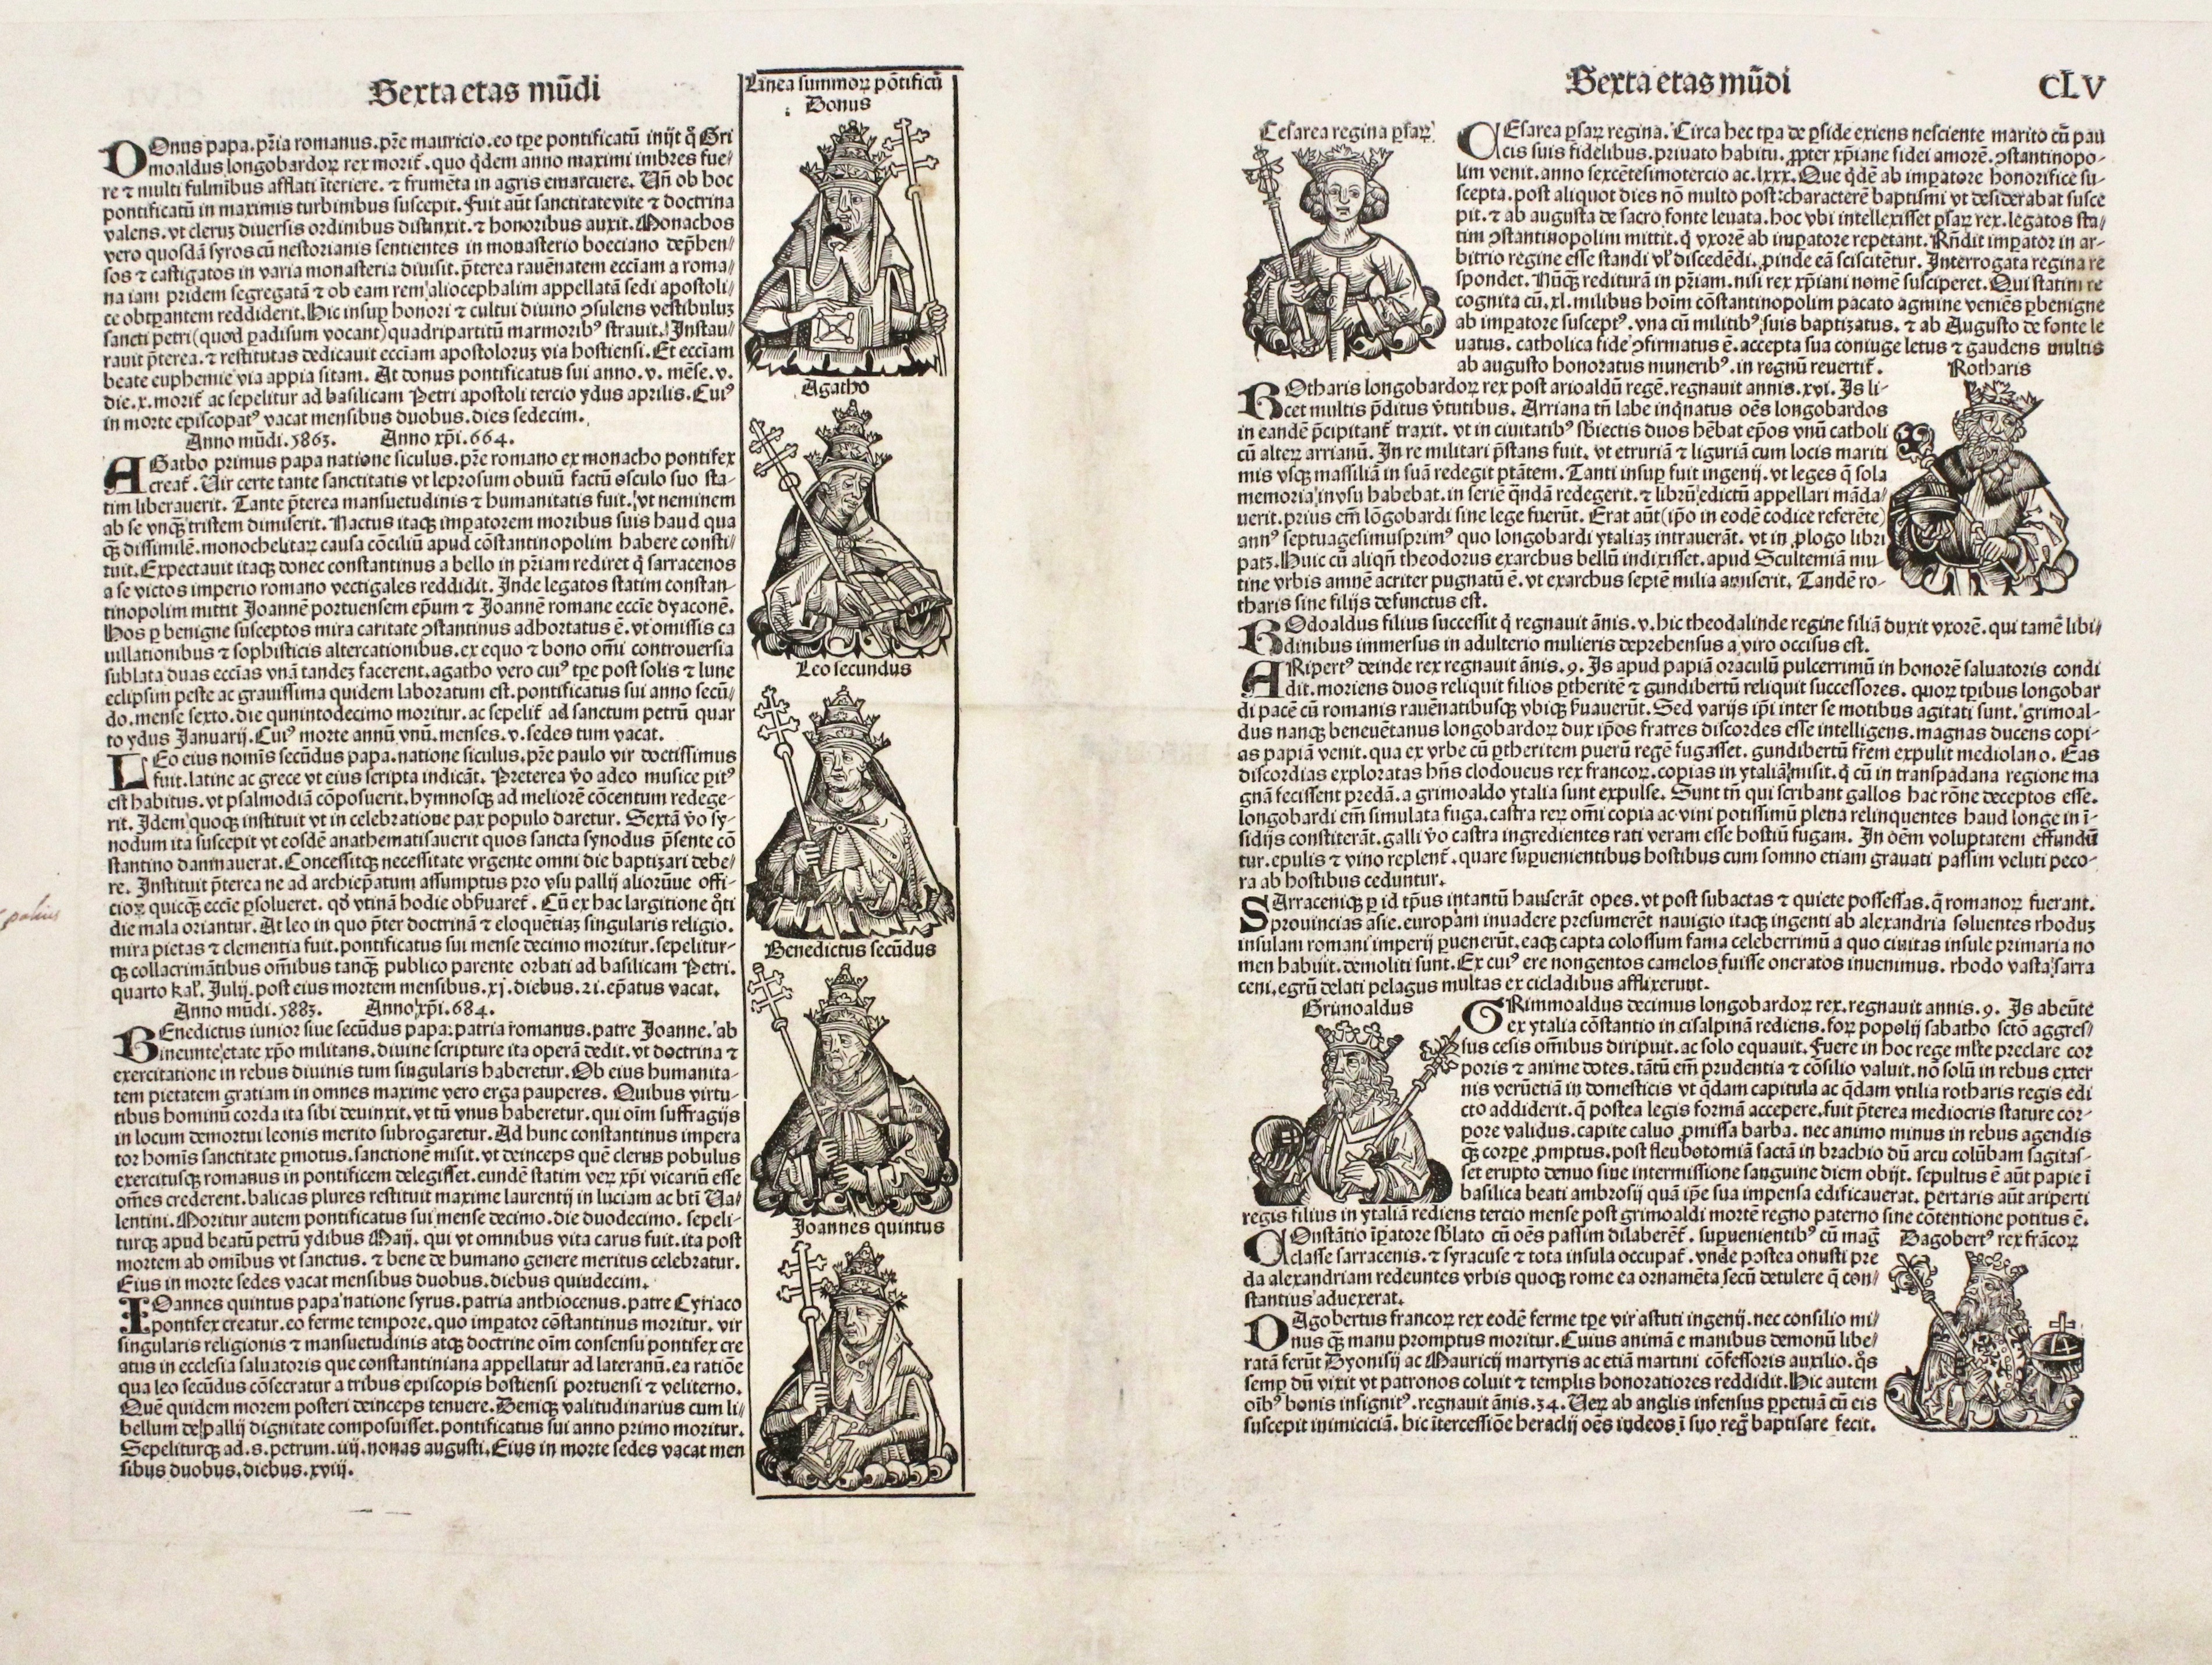 Sexta etas mũdi
Linea summoꝝ põtificũ
Donus
DOnus papa.pr̃ia romanus.pr̃e mauricio.eo tp̃e pontificatũ inijt q̃ Gri
moaldus longobardoꝝ rex morit̃.quo q̃dem anno maximi imbres fue/
re ⁊ multi fulmibus afflati ĩteriere.⁊ frumẽta in agris emarcuere. Uñ ob hoc
pontificatũ in maximis turbinibus suscepit.Fuit aũt sanctitate vite ⁊ doctrina
valens.vt clerus diuersis ordinibus distinxit.⁊ honoribus auxit.Monachos
vero quosdã syros cũ nestorianis sentientes in monasterio boeciano dep̃hen/
sos ⁊ castigatos in varia monasteria diuisit.p̃terea rauẽnatem eccĩam a roma/
na iam pridem segregatã ⁊ ob eam rem aliocephalim appellatã sedi apostoli/
ce obtꝑantem reddiderit.Hic insuꝑ honori ⁊ cultui diuino ꝯsulens vestibuluꝫ
sancti petri(quod ꝑadisum vocant)quadripartitũ marmoribꝰ strauit.Instau/
rauit p̃terea.⁊ restitutas dedicauit eccĩam apostoloruꝫ via hostiensi.Et eccĩam
beate euphemie via appia sitam. At donus pontificatus sui anno.v.mẽse.v.
die.x.morit̃ ac sepelitur ad basilicam Petri apostoli tercio ydus aprilis.Cuiꝰ
in morte episcopatꝰ vacat mensibus duobus.dies sedecim.
Anno mũdi.5863. Anno xp̃i.664.
Agatho
AGatho primus papa natione siculus.pr̃e romano ex monacho pontifex
creat̃.Uir certe tante sanctitatis vt leprosum obuiũ factũ osculo suo sta-
tim liberauerit. Tante p̃terea mansuetudinis ⁊ humanitatis fuit.vt neminem
ab se vnqꝫ tristem dimiserit.Nactus itaqꝫ imꝑatorem moribus suis haud qua
qꝫ dissimilẽ.monochelitaꝝ causa cõciliũ apud cõstantinopolim habere consti/
tuit.Expectauit itaqꝫ donec constantinus a bello in pr̃iam rediret q̃ sarracenos
a se victos imperio romano vectigales reddidit.Inde legatos statim constan-
tinopolim mittit Joannẽ portuensem ep̃um ⁊ Joannẽ romane eccĩe dyaconẽ.
Hos ꝑ benigne susceptos mira caritate ꝯstantinus adhortatus ẽ.vt omissis ca
uillationibus ⁊ sophisticis altercationibus.ex equo ⁊ bono om̃i controuersia
sublata duas eccĩas vnã tandeꝫ facerent.agatho vero cuiꝰ tp̃e post solis ⁊ lune
eclipsim peste ac grauissima quidem laboratum est.pontificatus sui anno secũ/
do.mense sexto.die qunintodecimo moritur.ac sepelit̃ ad sanctum petrũ quar
to ydus Januarij.Cuiꝰ morte annũ vnũ.menses.v.sedes tum vacat.
Leo secundus
LEo eius nomĩs secũdus papa.natione siculus.pr̃e paulo vir doctissimus
fuit.latine ac grece vt eius scripta indicãt. Preterea ṽo adeo musice ꝑitꝰ
est habitus.vt psalmodiã cõposuerit.hymnosqꝫ ad meliorẽ cõcentum redege-
rit. Idem quoqꝫ instituit vt in celebratione pax populo daretur. Sextã ṽo sy-
nodum ita suscepit vt eosdẽ anathematisauerit quos sancta synodus p̃sente cõ
stantino damnauerat.Concessitqꝫ necessitate vrgente omni die baptizari debe/
re. Instituit p̃terea ne ad archiep̃atum assumptus pro vsu pallij alioꝝũue offi-
cioꝝ quicqꝫ eccĩe ꝑsolueret. qđ vtinã hodie obẽuaret̃. Cũ ex hac largitione q̃ti
die mala oriantur. At leo in quo p̃ter doctrinã ⁊ eloquẽtiaꝫ singularis religio.
mira pietas ⁊ clementia fuit.pontificatus sui mense decimo moritur.sepelitur-
qꝫ collacrimãtibus om̃ibus tanqꝫ publico parente orbati ad basilicam Petri.
quarto kal̃. Julij.post eius mortem mensibus.xj.diebus.21.ep̃atus vacat.
Anno mũdi.5883. Anno xp̃i.684.
Benedictus secũdus
BEnedictus iunior siue secũdus papa.patria romanus.patre Joanne.ab
ineunte etate xp̃o militans.diuine scripture ita operã dedit.vt doctrina ⁊
exercitatione in rebus diuinis tum singularis haberetur. Ob eius humanita-
tem pietatem gratiam in omnes maxime vero erga pauperes. Quibus virtu-
tibus hominũ corda ita sibi deuinxit.vt tũ vnus haberetur.qui oĩm suffragijs
in locum demortui leonis merito subrogaretur.Ad hunc constantinus impera
tor homĩs sanctitate ꝑmotus.sanctionẽ misit.vt deinceps quẽ clerus pobulus
exercitusqꝫ romanus in pontificem delegisset.eundẽ statim veꝝ xp̃i vicariũ esse
om̃es crederent.balicas plures restituit maxime laurentij in luciam ac bt̃i Ua/
lentini.Moritur autem pontificatus sui mense decimo.die duodecimo. sepeli-
turqꝫ apud beatũ petrũ ydibus Maij. qui vt omnibus vita carus fuit.ita post
mortem ab om̃ibus vt sanctus. ⁊ bene de humano genere meritus celebratur.
Eius in morte sedes vacat mensibus duobus.diebus quiudecim.
Joannes quintus
IOannes quintus papa natione syrus.patria anthiocenus.patre Cyriaco
pontifex creatur.eo ferme tempore.quo imꝑator cõstantinus moritur. vir
singularis religionis ⁊ mansuetudinis atqꝫ doctrine oĩm consensu pontifex cre
atus in ecclesia saluatoris que constantiniana appellatur ad lateranũ.ea ratiõe
qua leo secũdus cõsecratur a tribus episcopis hostiensi portuensi ⁊ veliterno.
Quẽ quidem morem posteri deinceps tenuere. Deniqꝫ valitudinarius cum li/
bellum de pallij dignitate composuisset.pontificatus sui anno primo moritur.
Sepeliturqꝫ ad.s.petrum.iiij.nonas augusti.Eius in morte sedes vacat men
sibus duobus.diebus.xviij.
Sexta etas mũdi CLV
Cesarea regina ꝑsaꝝ
CEsarea ꝑsaꝝ regina. Circa hec tꝑa de ꝑside exiens nesciente marito cũ pau
cis suis fidelibus.priuato habitu.ꝓpter xp̃iane fidei amorẽ.ꝯstantinopo-
lim venit.anno sexcẽtesimotercio ac.lxxx.Que q̃dẽ ab imꝑatore honorifice su-
scepta.post aliquot dies nõ multo post:characterẽ baptismi vt desiderabat susce
pit.⁊ ab augusta de sacro fonte leuata.hoc vbi intellexisset ꝑsaꝝ rex.legatos sta/
tim ꝯstantinopolim mittit.q̃ vxorẽ ab imꝑatore repetant. Rñdit imꝑator in ar-
bitrio regine esse standi vl̃ discedẽdi.ꝓinde eã sciscitẽtur. Interrogata regina re
spondet. Nũqꝫ redituꝝã in pr̃iam.nisi rex xp̃iani nomẽ susciperet.Qui statim re
cognita cũ.xl.milibus hoĩm cõstantinopolim pacato agmine veniẽs ꝑbenigne
ab imꝑatore susceptꝰ.vna cũ militibꝰ suis baptizatus.⁊ ab Augusto de fonte le
uatus. catholica fide ꝯfirmatus ẽ.accepta sua coniuge letus ⁊ gaudens multis
ab augusto honoratus muneribꝰ.in regnũ reuertit̃.
Rotharis
ROtharis longobardoꝝ rex post arioaldũ regẽ.regnauit annis.xvi. Is li-
cet multis p̃ditus ṽtutibus. Arriana tñ labe inq̃natus oẽs longobardos
in eandẽ p̃cipitant̃ traxit.vt in ciuitatibꝰ sb̃iectis duos hẽbat ep̃os vnũ catholi
cũ alteꝝ arrianũ. In re militari p̃stans fuit. vt etruriã ⁊ liguriã cum locis mariti
mis vsqꝫ massiliã in suã redegit p̃tãtem. Tanti insuꝑ fuit ingenij.vt leges q̃ sola
memoria in vsu habebat.in serie q̃ndã redegerit.⁊ librũ edictũ appellari mãda/
uerit.prius em̃ lõgobardi sine lege fuerũt. Erat aũt(ip̃o in eodẽ codice referẽte)
annꝰ septuagesimusprimꝰ quo longobardi ytaliaꝫ intrauerãt.vt in ꝓlogo libri
patꝫ.Huic cũ aliqñ theodorus exarchus bellũ indixisset.apud Scultemiã mu-
tine vrbis amnẽ acriter pugnatũ ẽ.vt exarchus septẽ milia amiserit. Tandẽ ro-
tharis sine filijs defunctus est.
ROdoaldus filius successit q̃ regnauit ãnis.v.hic theodalinde regine filiã duxit vxorẽ.qui tamẽ libi/
dinibus immersus in adulterio mulieris deprehensus a viro occisus est.
ARipertꝰ deinde rex regnauit ãnis.9. Is apud papiã oraculũ pulcerrimũ in honorẽ saluatoris condi
dit.moriens duos reliquit filios ꝑtheritẽ ⁊ gundibertũ reliquit successores.quoꝝ tꝑibus longobar
di pacẽ cũ romanis rauẽnatibusqꝫ vbiqꝫ ẽuauerũt.Sed varijs ip̃i inter se motibus agitati sunt. grimoal-
dus nanqꝫ beneuẽtanus longobardoꝝ dux ip̃os fratres discordes esse intelligens.magnas ducens copi-
as papiã venit.qua ex vrbe cũ ꝑtheritem puerũ regẽ fugasset.gundibertũ fr̃em expulit mediolano. Eas
discordias exploratas hñs clodoueus rex francoꝝ.copias in ytaliã misit.q̃ cũ in transpadana regione ma
gnã fecissent predã.a grimoaldo ytalia sunt expulse. Sunt tñ qui scribant gallos hac rõne deceptos esse.
longobardi em̃ simulata fuga.castra reꝝ om̃i copia ac vini potissimũ plena relinquentes haud longe in ĩ-
sidijs constiterãt.galli ṽo castra ingredientes rati veram esse hostiũ fugam. In oẽm voluptatem effundũ
tur.epulis ⁊ vino replent̃.quare suꝑuenientibus hostibus cum somno etiam grauati passim veluti peco-
ra ab hostibus ceduntur.
SArraceniqꝫ ꝑ id tp̃us intantũ hauserãt opes.vt post subactas ⁊ quiete possessas.q̃ romanoꝝ fuerant.
prouincias asie.europam inuadere presumerẽt nauigio itaqꝫ ingenti ab alexandria soluentes rhoduꝫ
insulam romani imperij ꝑuenerũt.eaqꝫ capta colossum fama celeberrimũ a quo ciuitas insule primaria no
men habuit.demoliti sunt.Ex cuiꝰ ere nongentos camelos fuisse oneratos inuenimus. rhodo vasta sarra
ceni.egrũ delati pelagus multas ex cicladibus afflixerunt.
Grimoaldus
GRimmoaldus decimus longobardoꝝ rex.regnauit annis.9. Is abeũte
ex ytalia cõstantio in cisalpinã rediens.foꝝ popolij sabatho sctõ aggres/
sus cesis om̃ibus diripuit.ac solo equauit. Fuere in hoc rege ml̃te preclare cor
poris ⁊ anime dotes. tãtũ em̃ prudentia ⁊ cõsilio valuit.nõ solũ in rebus exter
nis verũetiã in domesticis vt q̃dam capitula ac q̃dam vtilia rotharis regis edi
cto addiderit.q̃ postea legis formã accepere.fuit p̃terea mediocris stature cor-
pore validus.capite caluo ꝓmissa barba. nec animo minus in rebus agendis
qꝫ corꝑe ꝓmptus.post fleubotomiã factã in brachio dũ arcu colũbam sagitas-
set erupto denuo siue intermissione sanguine diem obijt. sepultus ẽ aũt papie ĩ
basilica beati ambrosij quã ip̃e sua impensa edificauerat. pertaris aũt ariperti
regis filius in ytaliã rediens tercio mense post grimoaldi mortẽ regno paterno sine cõtentione potitus ẽ.
COnstãtio ĩꝑatore sb̃lato cũ oẽs passim dilaberẽt̃. suꝑuenientibꝰ cũ mag̃
classe sarracenis.⁊ syracuse ⁊ tota insula occupat̃.vnde postea onusti pre
da alexandriam redeuntes vrbis quoqꝫ rome ea ornamẽta secũ detulere q̃ con/
stantius aduexerat.
Dagobertꝰ rex frãcoꝝ
DAgobertus francoꝝ rex eodẽ ferme tp̃e vir astuti ingenij.nec consilio mi/
nus qꝫ manu promptus moritur.Cuius animã e manibus demonũ libe/
ratã ferũt Dyonisij ac Mauricij martyris ac etiã martini cõfessoris auxilio.q̃s
semꝑ dũ vixit vt patronos coluit ⁊ templis honoratiores reddidit.Hic autem
oĩbꝰ bonis insignitꝰ.regnauit ãnis.34.Ueꝝ ab anglis infensus ꝑpetuã cũ eis
suscepit inimiciciã. hic ĩtercessiõe heraclij oẽs iudeos ĩ suo reg̃ baptisare fecit.